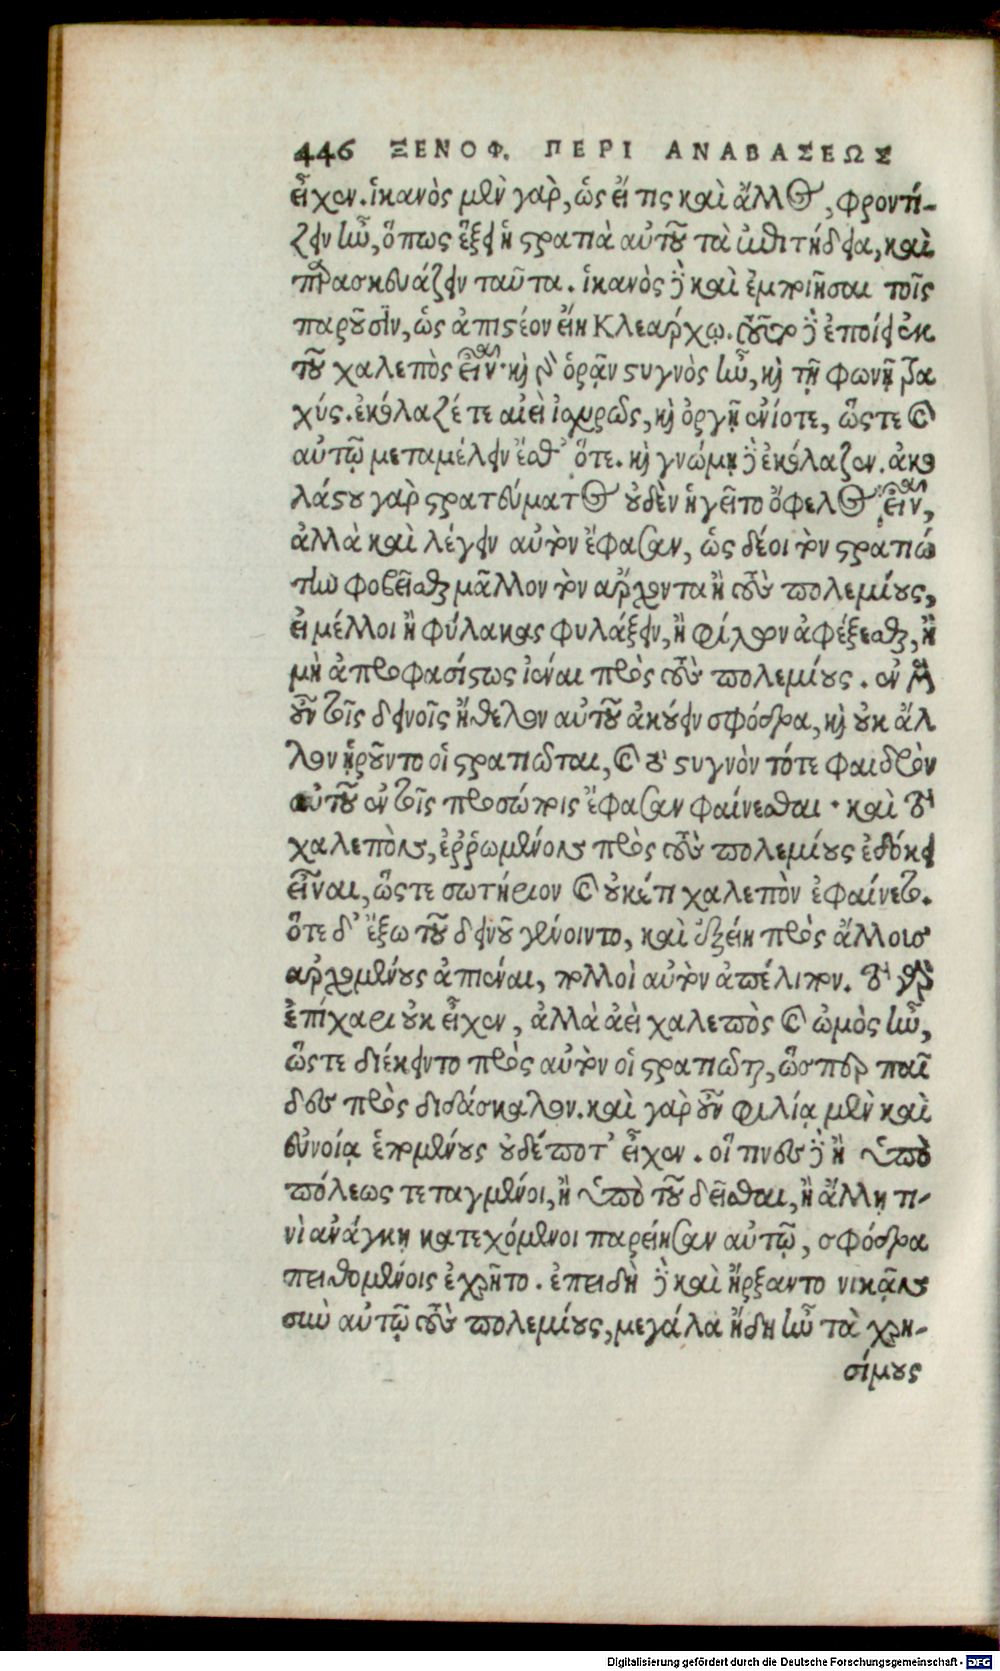 446 ΞΕΝΟΦ. ΠΕΡΙ ΑΝΑΒΑΣΕΩΣ
εἶχον. ἱκανὸς μὲν γὰρ, ὡς εἴ τις καὶ ἄλλος, φροντί-
ζειν ἦν, ὅπως ἕξει ἡ στρατιὰ αὐτοῦ τὰ ἐπιτήδεια, καὶ
παρασκευάζειν ταῦτα. ἱκανὸς δὲ καὶ ἐμποιῆσαι τοῖς
παροῦσιν, ὡς ἀπιστέον εἴη Κλεάρχῳ. τοῦτο δὲ ἐποίει ἐκ
τοῦ χαλεπὸς εἶναι. καὶ γὰρ ὁρᾷν στυγνὸς ἦν, καὶ τῇ φωνῇ τρα
χύς. ἐκόλαζέ τε αἰεὶ ἰσχυρῶς, καὶ ὀργῇ ἐνίοτε, ὥστε καὶ
αὐτῷ μεταμέλειν ἔσθ' ὅτε. καὶ γνώμῃ δὲ ἐκόλαζεν. ἀκο
λάστου γὰρ στρατεύματος οὐδὲν ἡγεῖτο ὄφελος εἶναι,
ἀλλὰ καὶ λέγειν αὐτὸν ἔφασαν, ὡς δέοι τὸν στρατιώ
την φοβεῖσθαι μᾶλλον τὸν ἄρχοντα ἢ τοὺς πολεμίους,
εἰ μέλλοι ἢ φύλακας φυλάξειν, ἢ φίλων ἀφέξεσθαι, ἢ
μὴ ἀπροφασίστως ἰέναι πρὸς τοὺς πολεμίους. ἐν μὲν
οὖν τοῖς δεινοῖς ἤθελον αὐτοῦ ἀκούειν σφόδρα, καὶ οὐκ ἄλ
λον ᾑροῦντο οἱ στρατιῶται, καὶ τὸ στυγνὸν τότε φαιδρὸν
αὐτοῦ ἐν τοῖς προσώποις ἔφασαν φαίνεσθαι· καὶ τὸ
χαλεπὸν, ἐῤῥωμένον πρὸς τοὺς πολεμίους ἐδόκει
εἶναι, ὥστε σωτήριον καὶ οὐκέτι χαλεπὸν ἐφαίνετο.
ὅτε δ' ἔξω τοῦ δεινοῦ γένοιντο, καὶ ἐξείη πρὸς ἄλλοις
ἀρχομένους ἀπιέναι, πολλοὶ αὐτὸν ἀπέλιπον. τὸ γὰρ
ἐπίχαρι οὐκ εἶχεν, ἀλλὰ ἀεὶ χαλεπὸς καὶ ὠμὸς ἦν,
ὥστε διέκειντο πρὸς αὐτὸν οἱ στρατιῶται, ὥσπερ παῖ
δες πρὸς διδάσκαλον. καὶ γὰρ οὖν φιλίᾳ μὲν καὶ
εὐνοίᾳ ἑπομένους οὐδέποτ' εἶχεν. οἵ τινες δὲ ἢ ὑπὸ
πόλεως τεταγμένοι, ἢ ὑπὸ τοῦ δεῖσθαι, ἢ ἄλλῃ τι-
νὶ ἀνάγκῃ κατεχόμενοι παρείησαν αὐτῷ, σφόδρα
πειθομένοις ἐχρῆτο. ἐπειδὴ δὲ καὶ ἤρξαντο νικᾷν
σὺν αὐτῷ τοὺς πολεμίους, μεγάλα ἤδη ἦν τὰ χρη-
σίμους
Digitalisierung gefördert durch die Deutsche Forschungsgemeinschaft - DFG